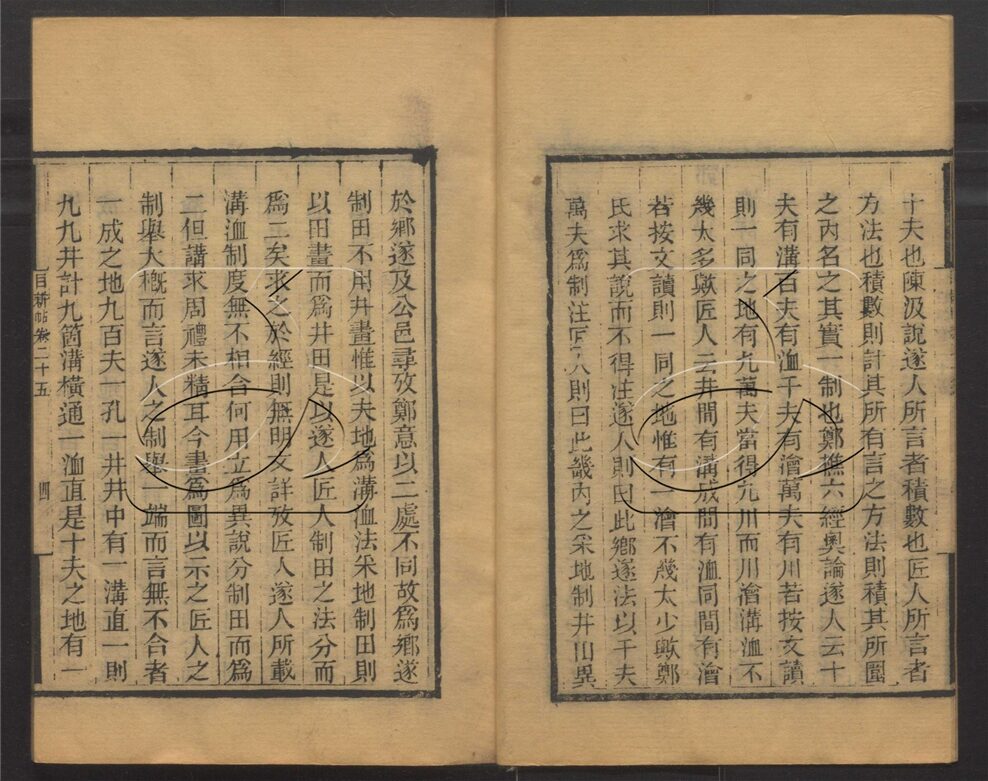 十夫也陳汲說遂人所言者積數也匠人所言者
方法也積數則計其所有言之方法則積其所圍
之内名之其實一制也鄭樵六經奥論遂人云十
夫有溝百夫有洫千夫有澮萬夫有川若按文讀
則一同之地有九萬夫當得九川而川澮溝洫不
幾太多歟匠人云井間有溝成間有洫同間有澮
若按文讀則一同之地惟有一澮不幾太少歟鄭
氏求其說而不得注遂人則曰此鄉遂法以千夫
萬夫爲制注匠人則曰此畿内之采地制井田異
於鄉遂及公邑尋攷鄭意以二處不同故爲鄉遂
制田不用井畫惟以夫地爲溝洫法采地制田則
以田畫而爲井田是以遂人匠人制田之法分而
爲二矣求之於經則無明文詳攷匠人遂人所載
溝洫制度無不相合何用立爲異說分制田而爲
二但講求周禮未精耳今畫爲圖以示之匠人之
制舉大概而言遂人之制舉一端而言無不合者
一成之地九百夫一孔一井井中有一溝直一則
九九井計九箇溝橫通一洫直是十夫之地有一
目耕帖卷二十五
四